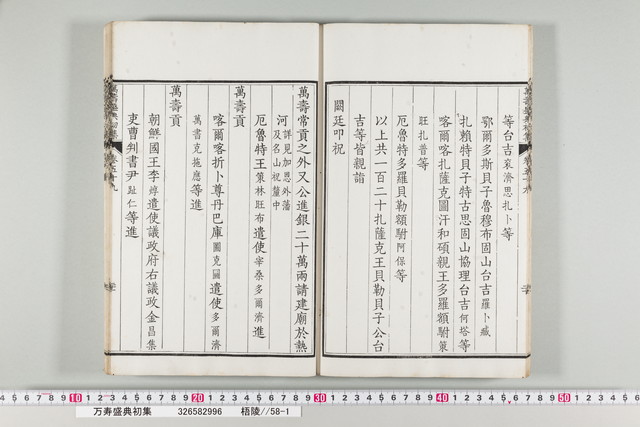 等台吉袞濟思扎卜等
鄂爾多斯貝子魯穆布固山台吉羅卜臧
扎賴特貝子特古思固山協理台吉何塔等
喀爾喀扎薩克圖汗和碩親王多羅額駙策
旺扎普等
厄魯特多羅貝勒額駙阿保等
以上共一百二十扎薩克王貝勒貝子公台
吉等皆親詣
闕廷叩祝
萬壽常貢之外又公進銀二十萬兩請建廟於熱
河詳見加恩外藩及名山祝釐中
厄魯特王策林旺布遣使宰桑多爾濟進
萬壽貢
喀爾喀折卜尊丹巴庫圖克圖遣使多爾濟
萬書克拖應等進
萬壽貢
朝鮮國王李焞遣使議政府右議政金昌集
吏曹判書尹趾仁等進
10 20 30 40 50
万寿盛典初集 326582996 梧陵//58-1